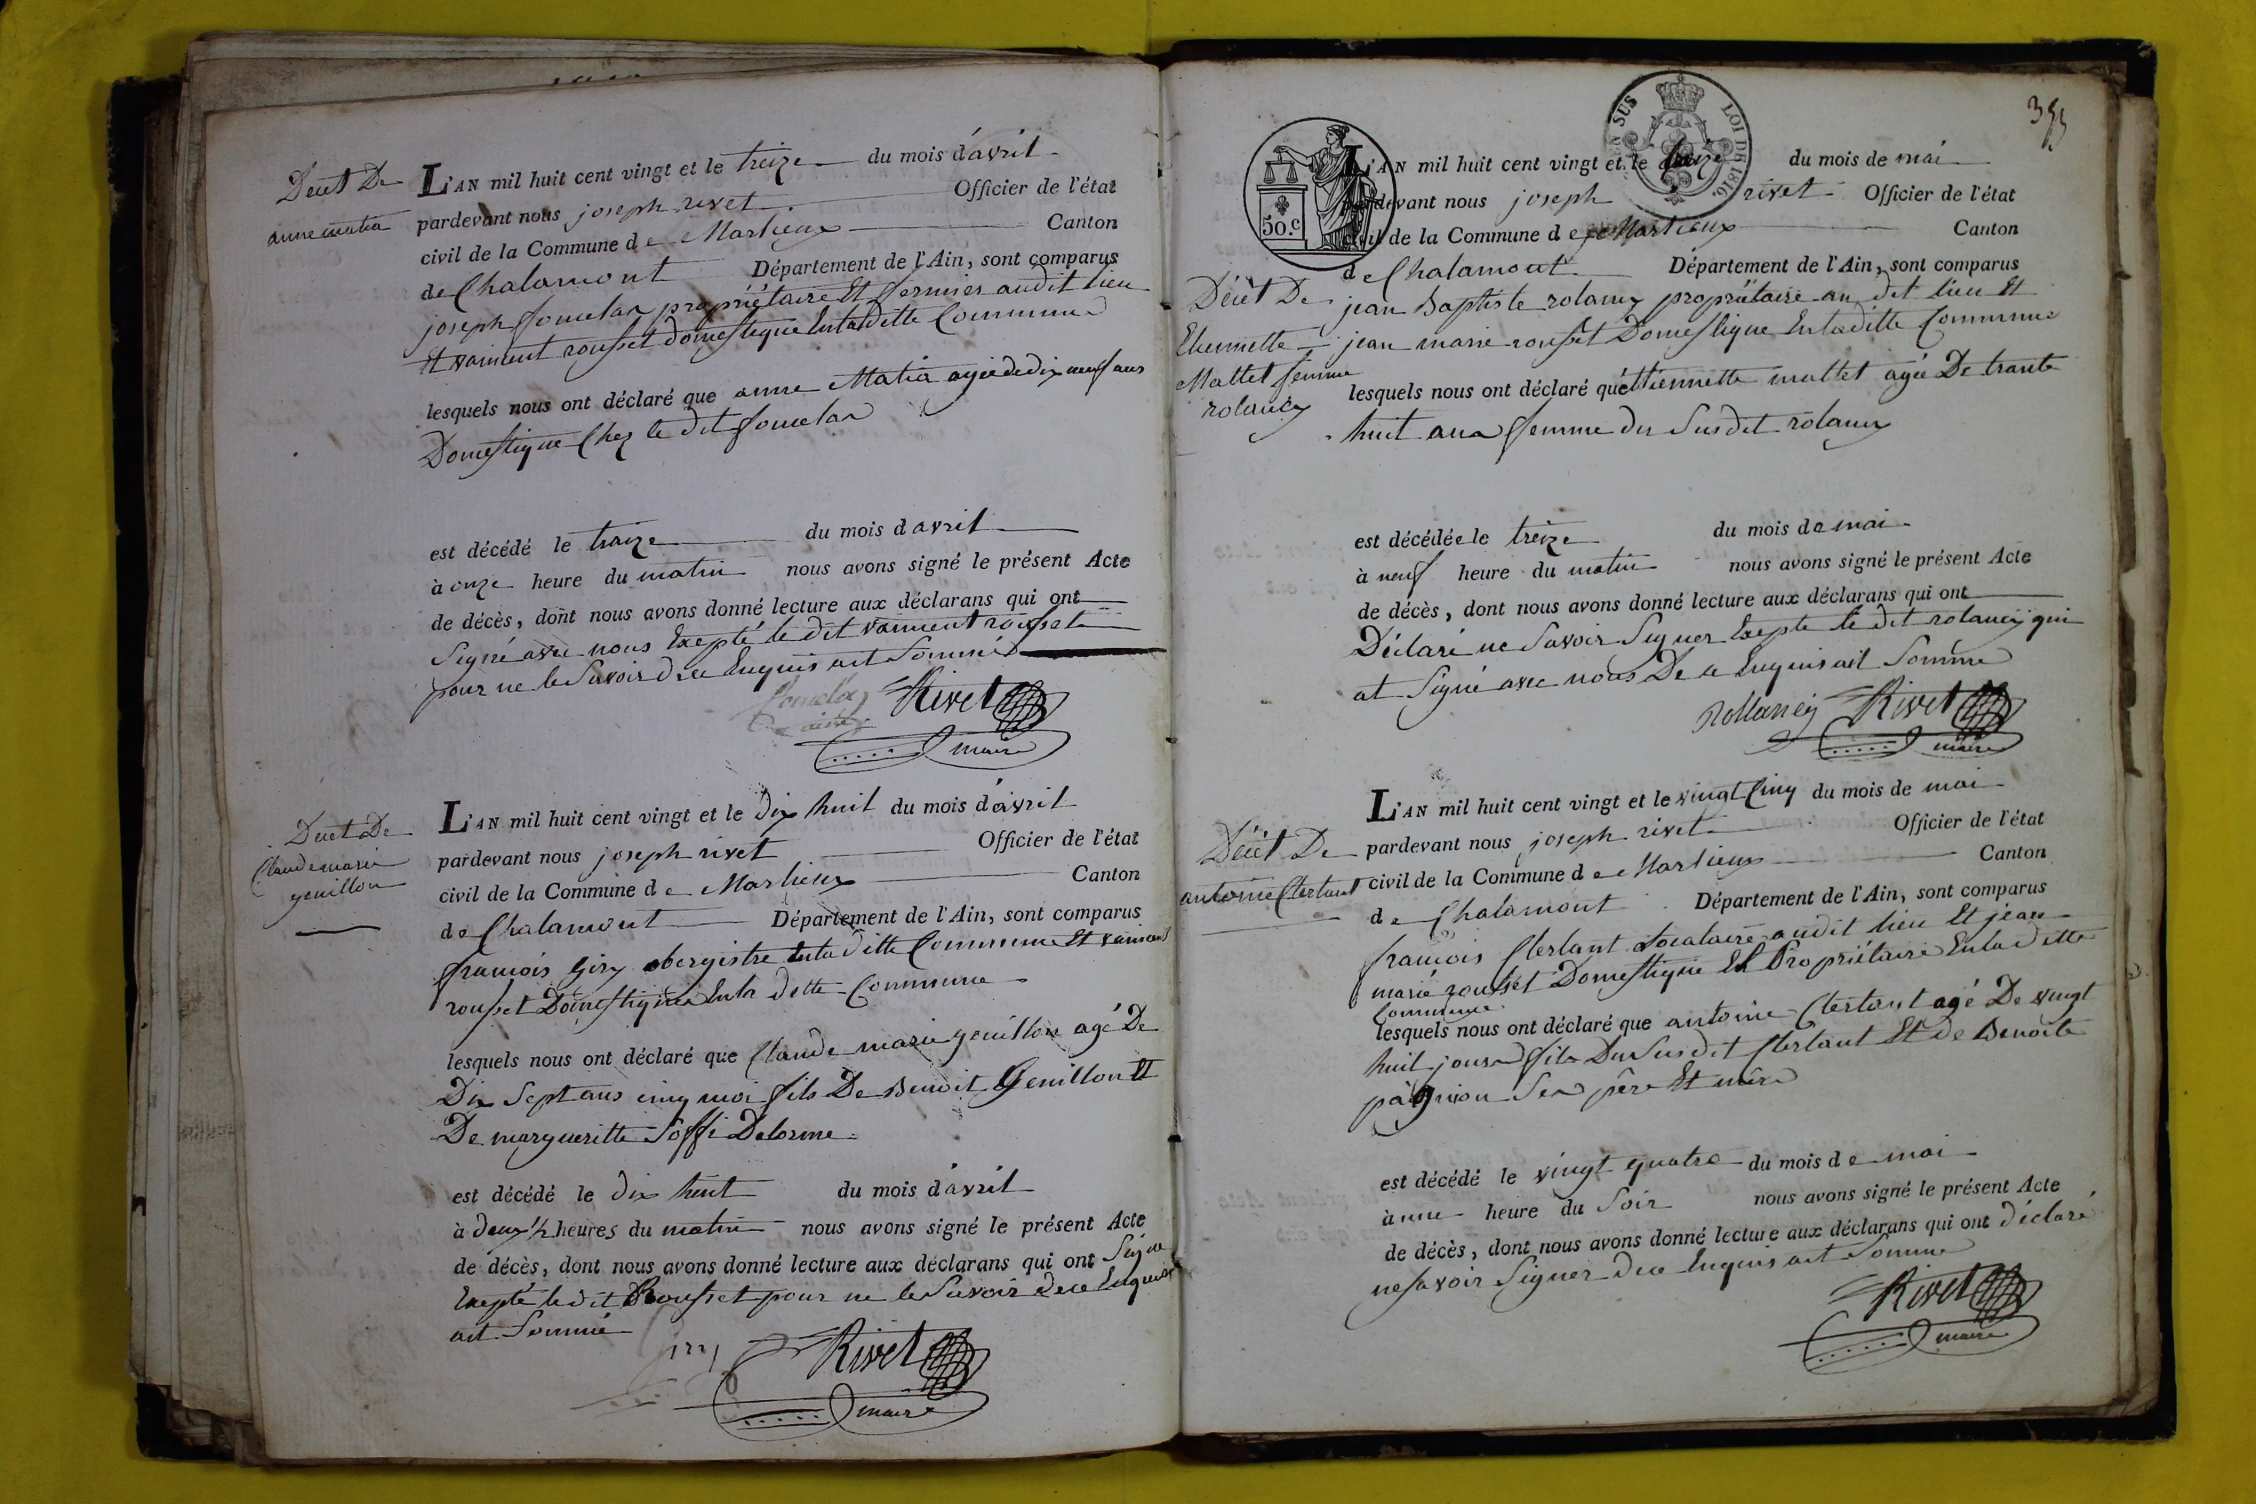 Decet De
anne matia
L'AN mil huit cent vingt et le treize du mois d'avril
pardevant nous joseph rivet Officier de l'état
civil de la Commune de Marlieux Canton
de Chalamont Département de l'Ain, sont comparus
joseph propriétaire Et fermier audit lieu
Et vaincent rousset domestique Enladitte Commune
lesquels nous ont déclaré que anne Matia agée de dix neuf ans
Domestique Chez le dit
est décédé le traize du mois d avril
à onze heure du matin nous avons signé le présent Acte
de décès, dont nous avons donné lecture aux déclarans qui ont
Signé avec nous Exepté le dit vaincent rousset
pour ne le Savoir de ce Enquis ait Sommé
Rivet
maire
Decet De
Claude marie
genillon
L'AN mil huit cent vingt et le dix huit du mois d'avril
pardevant nous joseph rivet Officier de l'état
civil de la Commune de Marlieux Canton
de Chalamont Département de l'Ain, sont comparus
francois Giry obergistre Enladitte Commune Et vaincent
rousset Domestique Enla ditte Commune
lesquels nous ont déclaré que Claude marie genillon agé De
Dix Sept ans cinq moi fils De Benoit Genillon Et
De margueritte Soffi Delorme
est décédé le dix huit du mois d'avril
à deux 1/2 heures du matin nous avons signé le présent Acte
de décès, dont nous avons donné lecture aux déclarans qui ont Signe
Exepté le dit Rousset pour ne le Savoir de ce Enquis
ait Sommé
Giry Rivet
maire
355
50.c
SUS LOI DE 1816.
Décèt De
Etiennette
Mattet femme
rolancy
L'AN mil huit cent vingt et le treize du mois de mai
pardevant nous joseph rivet Officier de l'état
civil de la Commune de Marlieux Canton
de Chalamont Département de l'Ain, sont comparus
jean Baptiste rolancy propriétaire au dit lieu Et
jean marie rousset Domestique Enladitte Commune
lesquels nous ont déclaré que étiennette mattet agée De trante
huit ans femme du Susdit rolancy
est décédée le treize du mois de mai
à neuf heure du matin nous avons signé le présent Acte
de décès, dont nous avons donné lecture aux déclarans qui ont
Déclaré ne Savoir Signer Exepte le dit rolancy qui
at Signé avec nous De ce Enquis ait Somme
Rollancy Rivet
maire
Décèt De
antoine Clertant
L'AN mil huit cent vingt et le vingt Cinq du mois de mai
pardevant nous joseph rivet Officier de l'état
civil de la Commune de Marlieux Canton
de Chalamont Département de l'Ain, sont comparus
francois Clertant Locataire audit lieu Et jean
marie rousset Domestique Et Propriétaire Enladitte
Commune
lesquels nous ont déclaré que antoine Clertant agé De vingt
huit jours fils Du Susdit Clertant Et de Benoite
pagnion Ses père Et mère
est décédé le vingt quatre du mois de mai
à une heure du Soir nous avons signé le présent Acte
de décès, dont nous avons donné lecture aux déclarans qui ont déclaré
ne Savoir Signer de ce Enquis ait Somme
Rivet
maire